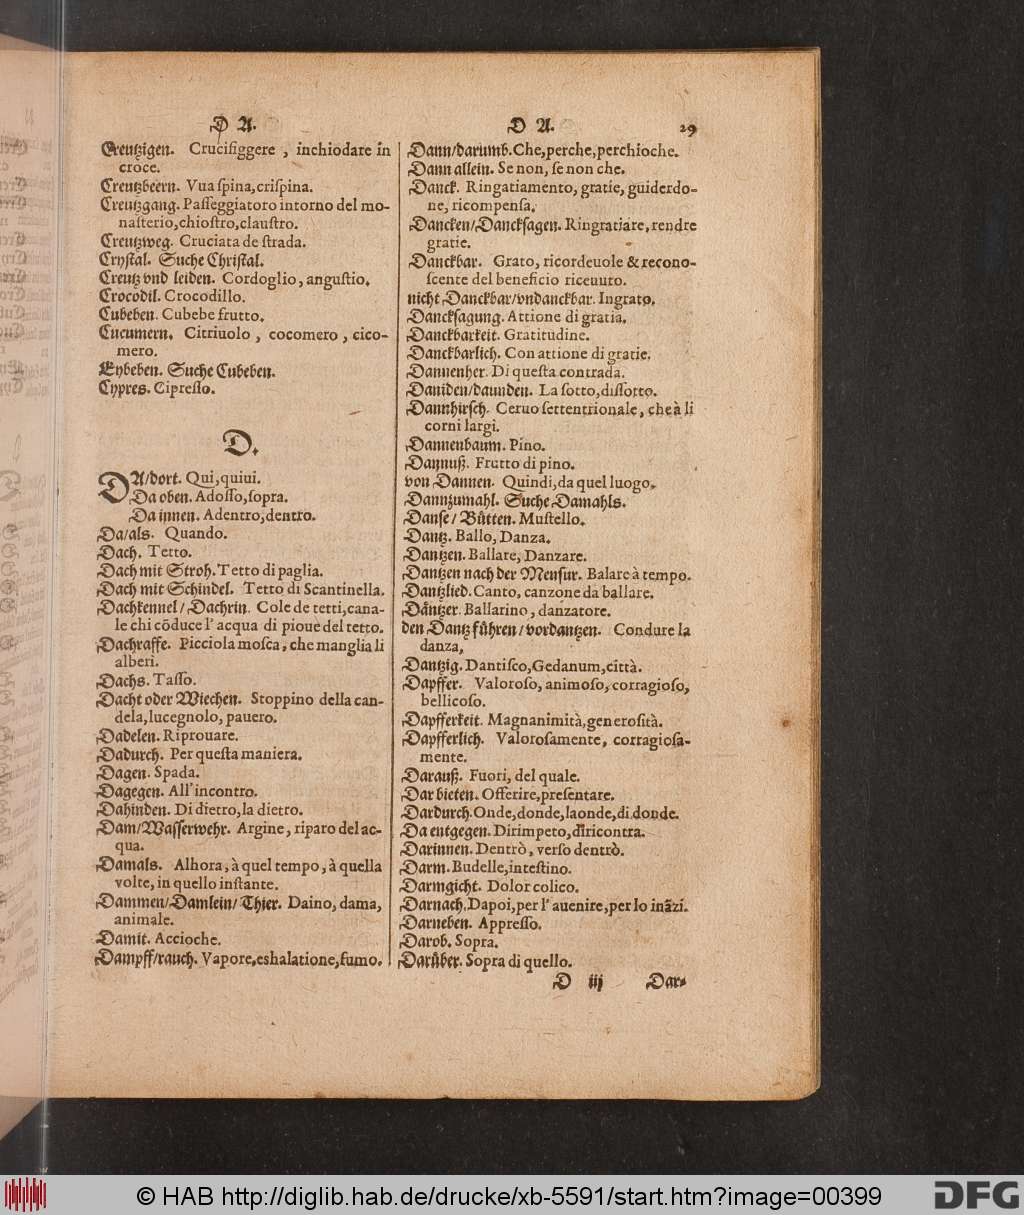 D A.
Creutzigen. Crucifiggere, inchiodare in
croce.
Creutzbeern. Vua ſpina, criſpina.
Creutzgang. Paſſeggiatoro intorno del mo-
naſterio, chioſtro, clauſtro.
Creutzweg. Cruciata de ſtrada.
Cryſtal. Suche Chriſtal.
Creutz vnd leiden. Cordoglio, anguſtio.
Crocodil. Crocodillo.
Cubeben. Cubebe frutto.
Cucumern. Citriuolo, cocomero, cico-
mero.
Cybeben. Suche Cubeben.
Cypres. Cipreſſo.
D.
DA/dort. Qui, quiui.
Da oben. Adoſſo, ſopra.
Da innen. Adentro, dentro.
Da/als. Quando.
Dach. Tetto.
Dach mit Stroh. Tetto di paglia.
Dach mit Schindel. Tetto di Scantinella.
Dachkennel/Dachrin. Cole de tetti, cana-
le chi cõduce l'acqua di pioue del tetto.
Dachraffe. Picciola moſca, che manglia li
alberi.
Dachs. Taſſo.
Dacht oder Wiechen. Stoppino della can-
dela, lucegnolo, pauero.
Dadelen. Riprouare.
Dadurch. Per queſta maniera.
Dagen. Spada.
Dagegen. All'incontro.
Dahinden. Di dietro, la dietro.
Dam/Waſſerwehr. Argine, riparo del ac-
qua.
Damals. Alhora, à quel tempo, à quella
volte, in quello inſtante.
Dammen/Damlein/Thier. Daino, dama,
animale.
Damit. Accioche.
Dampff/rauch. Vapore, eshalatione, fumo.
D A. 29
Dann/darumb. Che, perche, perchioche.
Dann allein. Se non, ſe non che.
Danck. Ringatiamento, gratie, guiderdo-
ne, ricompenſa.
Dancken/Danckſagen. Ringratiare, rendre
gratie.
Danckbar. Grato, ricordeuole & recono-
ſcente del beneficio riceuuto.
nicht Danckbar/vndanckbar. Ingrato.
Danckſagung. Attione di gratia.
Danckbarkeit. Gratitudine.
Danckbarlich. Con attione di gratie.
Dannenher. Di queſta contrada.
Daniden/daunden. La ſotto, diſſotto.
Dannhirſch. Ceruo ſettentrionale, che à li
corni largi.
Dannenbaum. Pino.
Dannuß. Frutto di pino.
von Dannen. Quindi, da quel luogo.
Dannzumahl. Suche Damahls.
Danſe/Bütten. Muſtello.
Dantz. Ballo, Danza.
Dantzen. Ballare, Danzare.
Dantzen nach der Menſur. Balare à tempo.
Dantzlied. Canto, canzone da ballare.
Däntzer. Ballarino, danzatore.
den Dantz führen/vordantzen. Condure la
danza,
Dantzig. Dantiſco, Gedanum, città.
Dapffer. Valoroſo, animoſo, corragioſo,
bellicoſo.
Dapfferkeit. Magnanimità, generoſità.
Dapfferlich. Valoroſamente, corragioſa-
mente.
Darauß. Fuori, del quale.
Dar bieten. Offerire, preſentare.
Dardurch. Onde, donde, laonde, di donde.
Da entgegen. Dirimpeto, diricontra.
Darinnen. Dentrò, verſo dentrò.
Darm. Budelle, inteſtino.
Darmgicht. Dolor colico.
Darnach. Dapoi, per l'auenire, per lo inãzi.
Darneben. Appreſſo.
Darob. Sopra.
Darüber. Sopra di quello.
D iij Dar-
© HAB http://diglib.hab.de/drucke/xb-5591/start.htm?image=00399
DFG